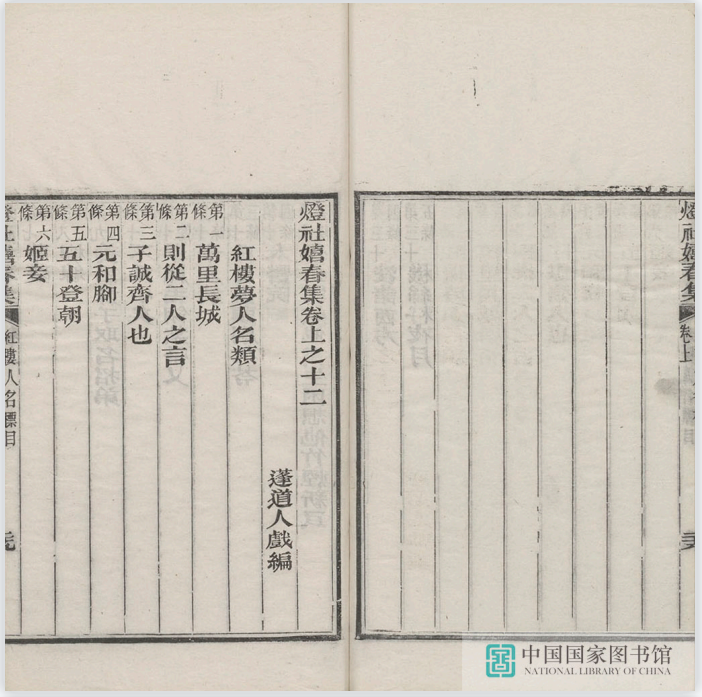 燈社嬉春集
卷上
燈社嬉春集卷上之十二
蓬道人戲編
紅樓夢人名類
第一條 萬里長城
第二條 則從二人之言
第三條 子誠齊人也
第四條 元和腳
第五條 五十登朝
第六條 姬妾
燈社嬉春集
紅樓人名標目
中国国家图书馆
NATIONAL LIBRARY OF CHINA